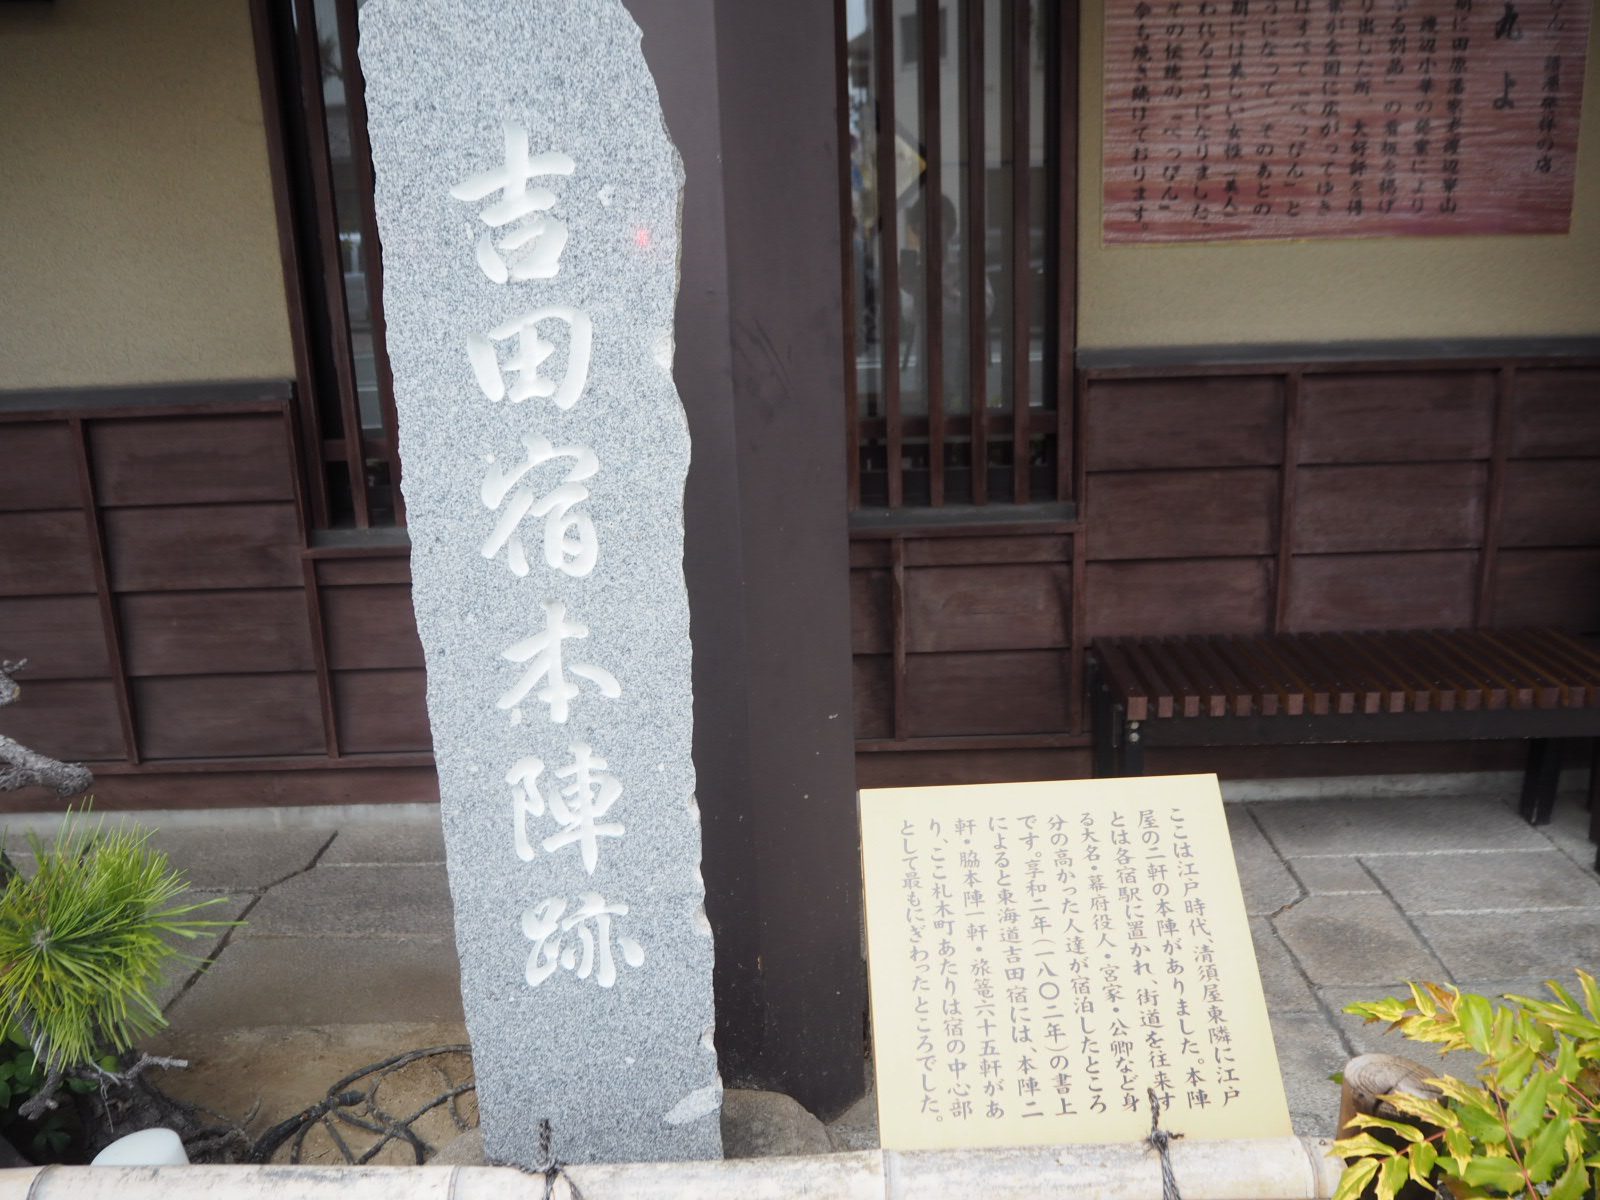 吉田宿本陣跡
ここは江戸時代、清須屋東隣に江戸
屋の二軒の本陣がありました。本陣
とは各宿駅に置かれ、街道を往来す
る大名・幕府役人・宮家・公卿など身
分の高かった人達が宿泊したところ
です。享和二年(一八〇二年)の書上
によると東海道吉田宿には、本陣二
軒・脇本陣一軒・旅篭六十五軒があ
り、ここ札木町あたりは宿の中心部
として最もにぎわったところでした。
丸よ
発祥の店
期に田原藩家老渡辺崋山
渡辺小華の発案により
る別品」の看板を掲げ
り出した所、大好評を得
葉が全国に広がってゆき
はすべて「べっぴん」と
うになって、そのあとの
期には美しい女性(美人)
われるようになりました。
々の伝統の「べっぴん」
今も焼き続けております。